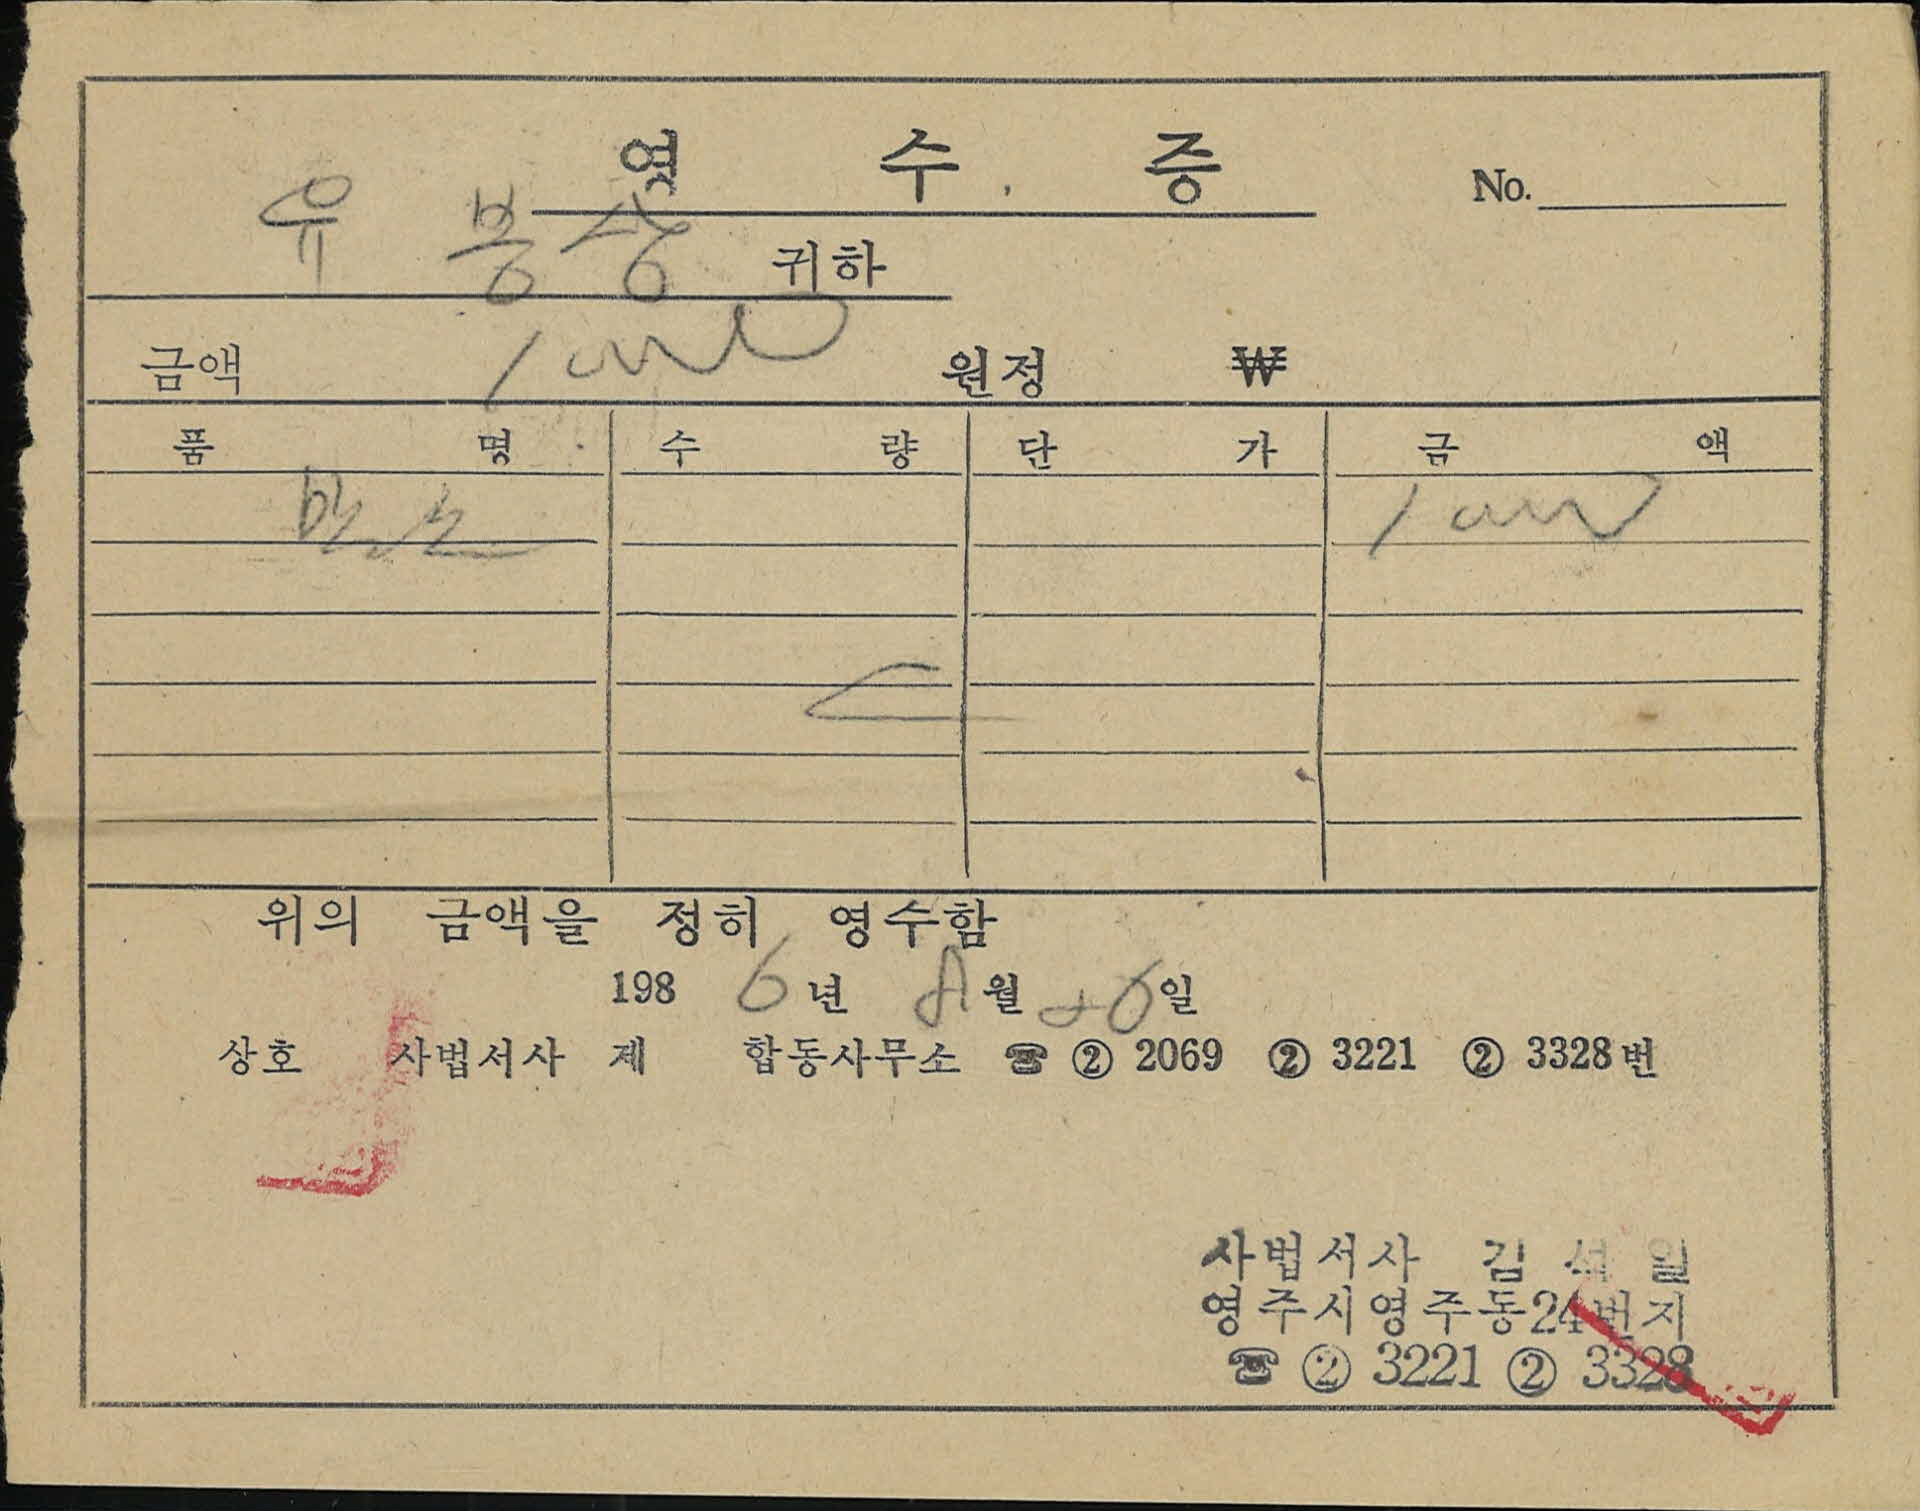 영 수 증
No.
유 봉상 귀하
금액 원정 ₩
품 명 수 량 단 가 금 액
위의 금액을 정히 영수함
1986년 8월 26일
상호 사법서사 제 합동사무소 ☎ ② 2069 ② 3221 ② 3328번
사법서사 김 석 일
영주시영주동24번지
☎ ② 3221 ② 3328